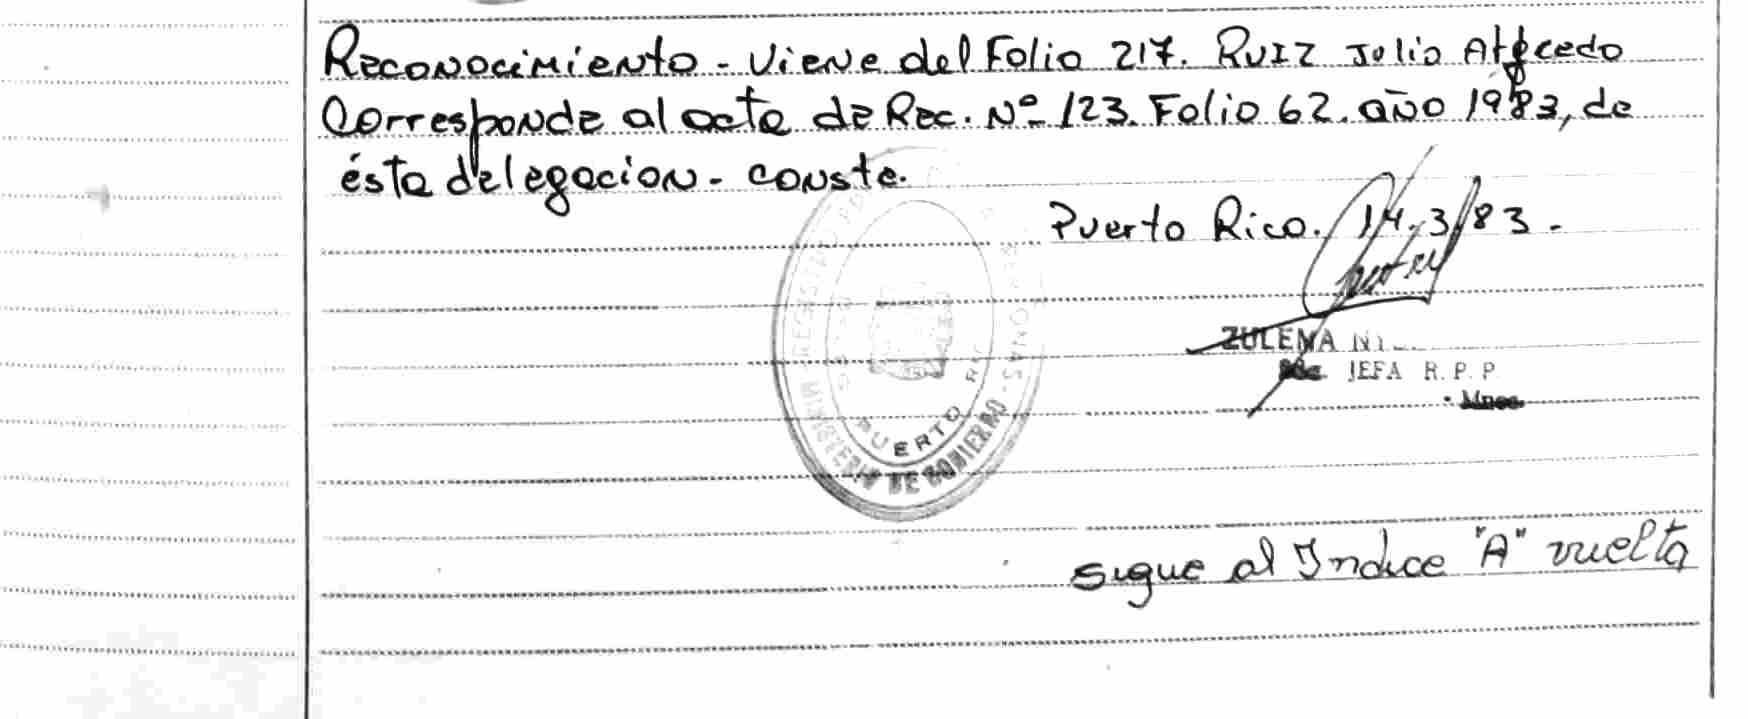 Reconocimiento - Viene del Folio 217. RUIZ Julio Alfredo
Corresponde al acta de Rec. Nº 123. Folio 62. año 1983, de
ésta delegacion - conste.
Puerto Rico. 14.3/83 -
ZULEMA
JEFA R. P. P
MINISTERIO DE GOBIERNO
PUERTO RI
sigue al Indice "A" vuelta